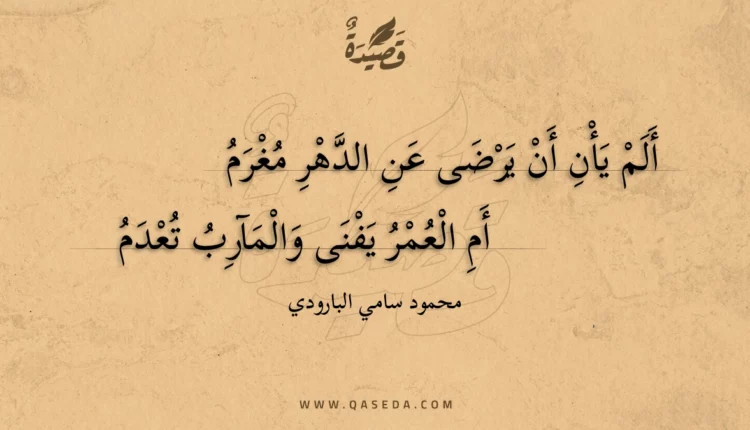 قَصِيدَةٌ
أَلَمْ يَأْنِ أَنْ يَرْضَى عَنِ الدَّهْرِ مُغْرَمُ
أَمِ الْعُمْرُ يَفْنَى وَالْمَآرِبُ تُعْدَمُ
محمود سامي البارودي
WWW.QASEDA.COM